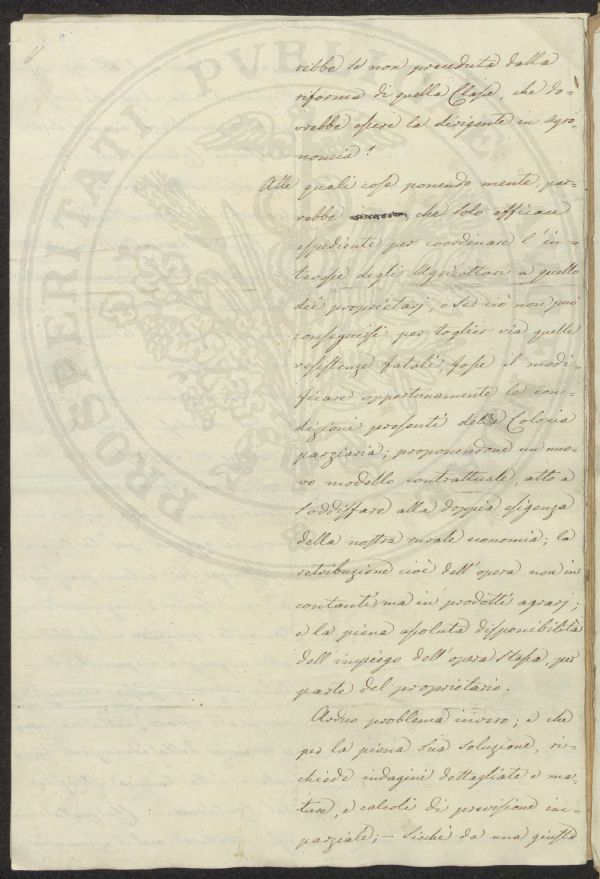 rebbe se non preceduta dalla
riforma di quella Classe, che do-
vrebbe essere la dirigente in agro-
nomia!
Alle quali cose ponendo mente, par-
rebbe che solo efficace
espediente per coordinare l'in-
teresse degli Agricoltori a quello
dei proprietarj, o se ciò non può
conseguirsi per toglier via quelle
resistenze fatali, fosse il modi-
ficare opportunamente le con-
dizioni presenti della Colonia
parziaria; proponendone un nuo-
vo modello contrattuale, atto a
soddisfare alla doppia esigenza
della nostra rurale economia; la
retribuzione cioè dell'opera non in
contanti, ma in prodotti agrarj;
e la piena assoluta disponibilità
dell'impiego dell'opera stessa, per
parte del proprietario.
Arduo problema invero; e che
per la piena sua soluzione, ri-
chiede indagini dettagliate e ma-
ture, e calcoli di previsione im-
parziale; – sicchè da una giusta
PROSPERITATI PVBLICAE